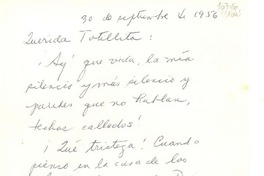 30 de septiembre de 1956
Querida Totillita:
¡Ay! que vida, la mía
silencio y más silencio y
paredes que no hablan,
techos callados!
¡Qué tristeza! Cuando
pienso en la casa de los